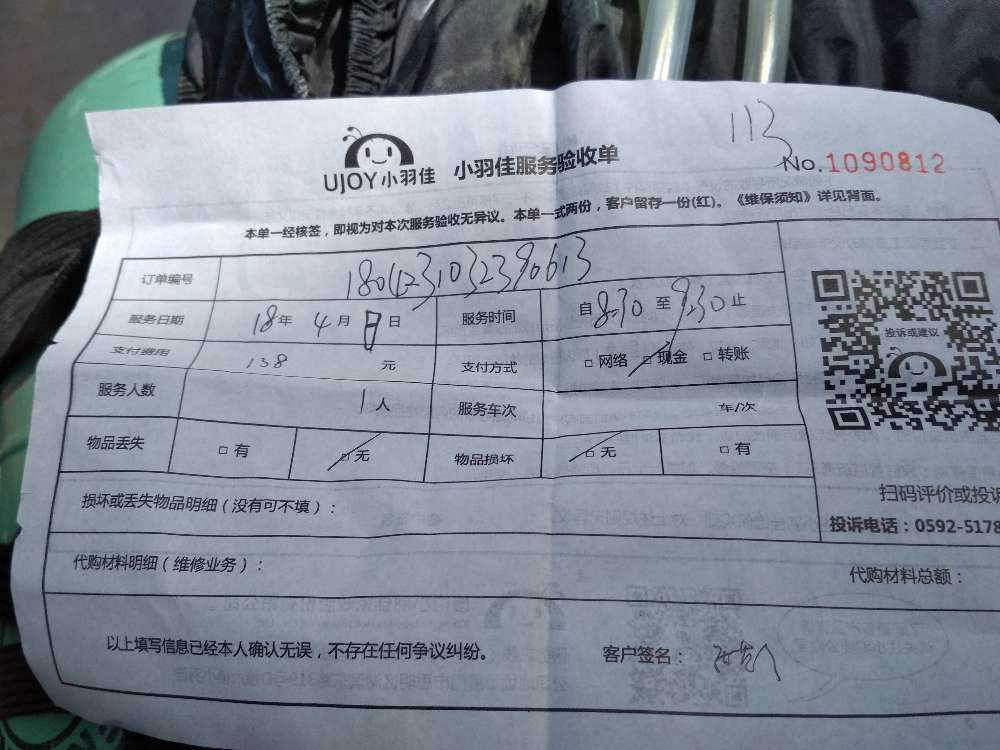 113
UJOY小羽佳 小羽佳服务验收单 No.1090812
本单一经核签，即视为对本次服务验收无异议。本单一式两份，客户留存一份(红)。《维保须知》详见背面。
订单编号 1804231032390613
服务日期 18年 4月 日 服务时间 自8:30至9:30止
支付费用 138 元 支付方式 □网络 □现金 □转账
服务人数 1人 服务车次 车/次
物品丢失 □有 □无 物品损坏 □无 □有
投诉或建议
损坏或丢失物品明细（没有可不填）：
扫码评价或投诉
投诉电话：0592-5178
代购材料明细（维修业务）：
代购材料总额：
以上填写信息已经本人确认无误，不存在任何争议纠纷。 客户签名：